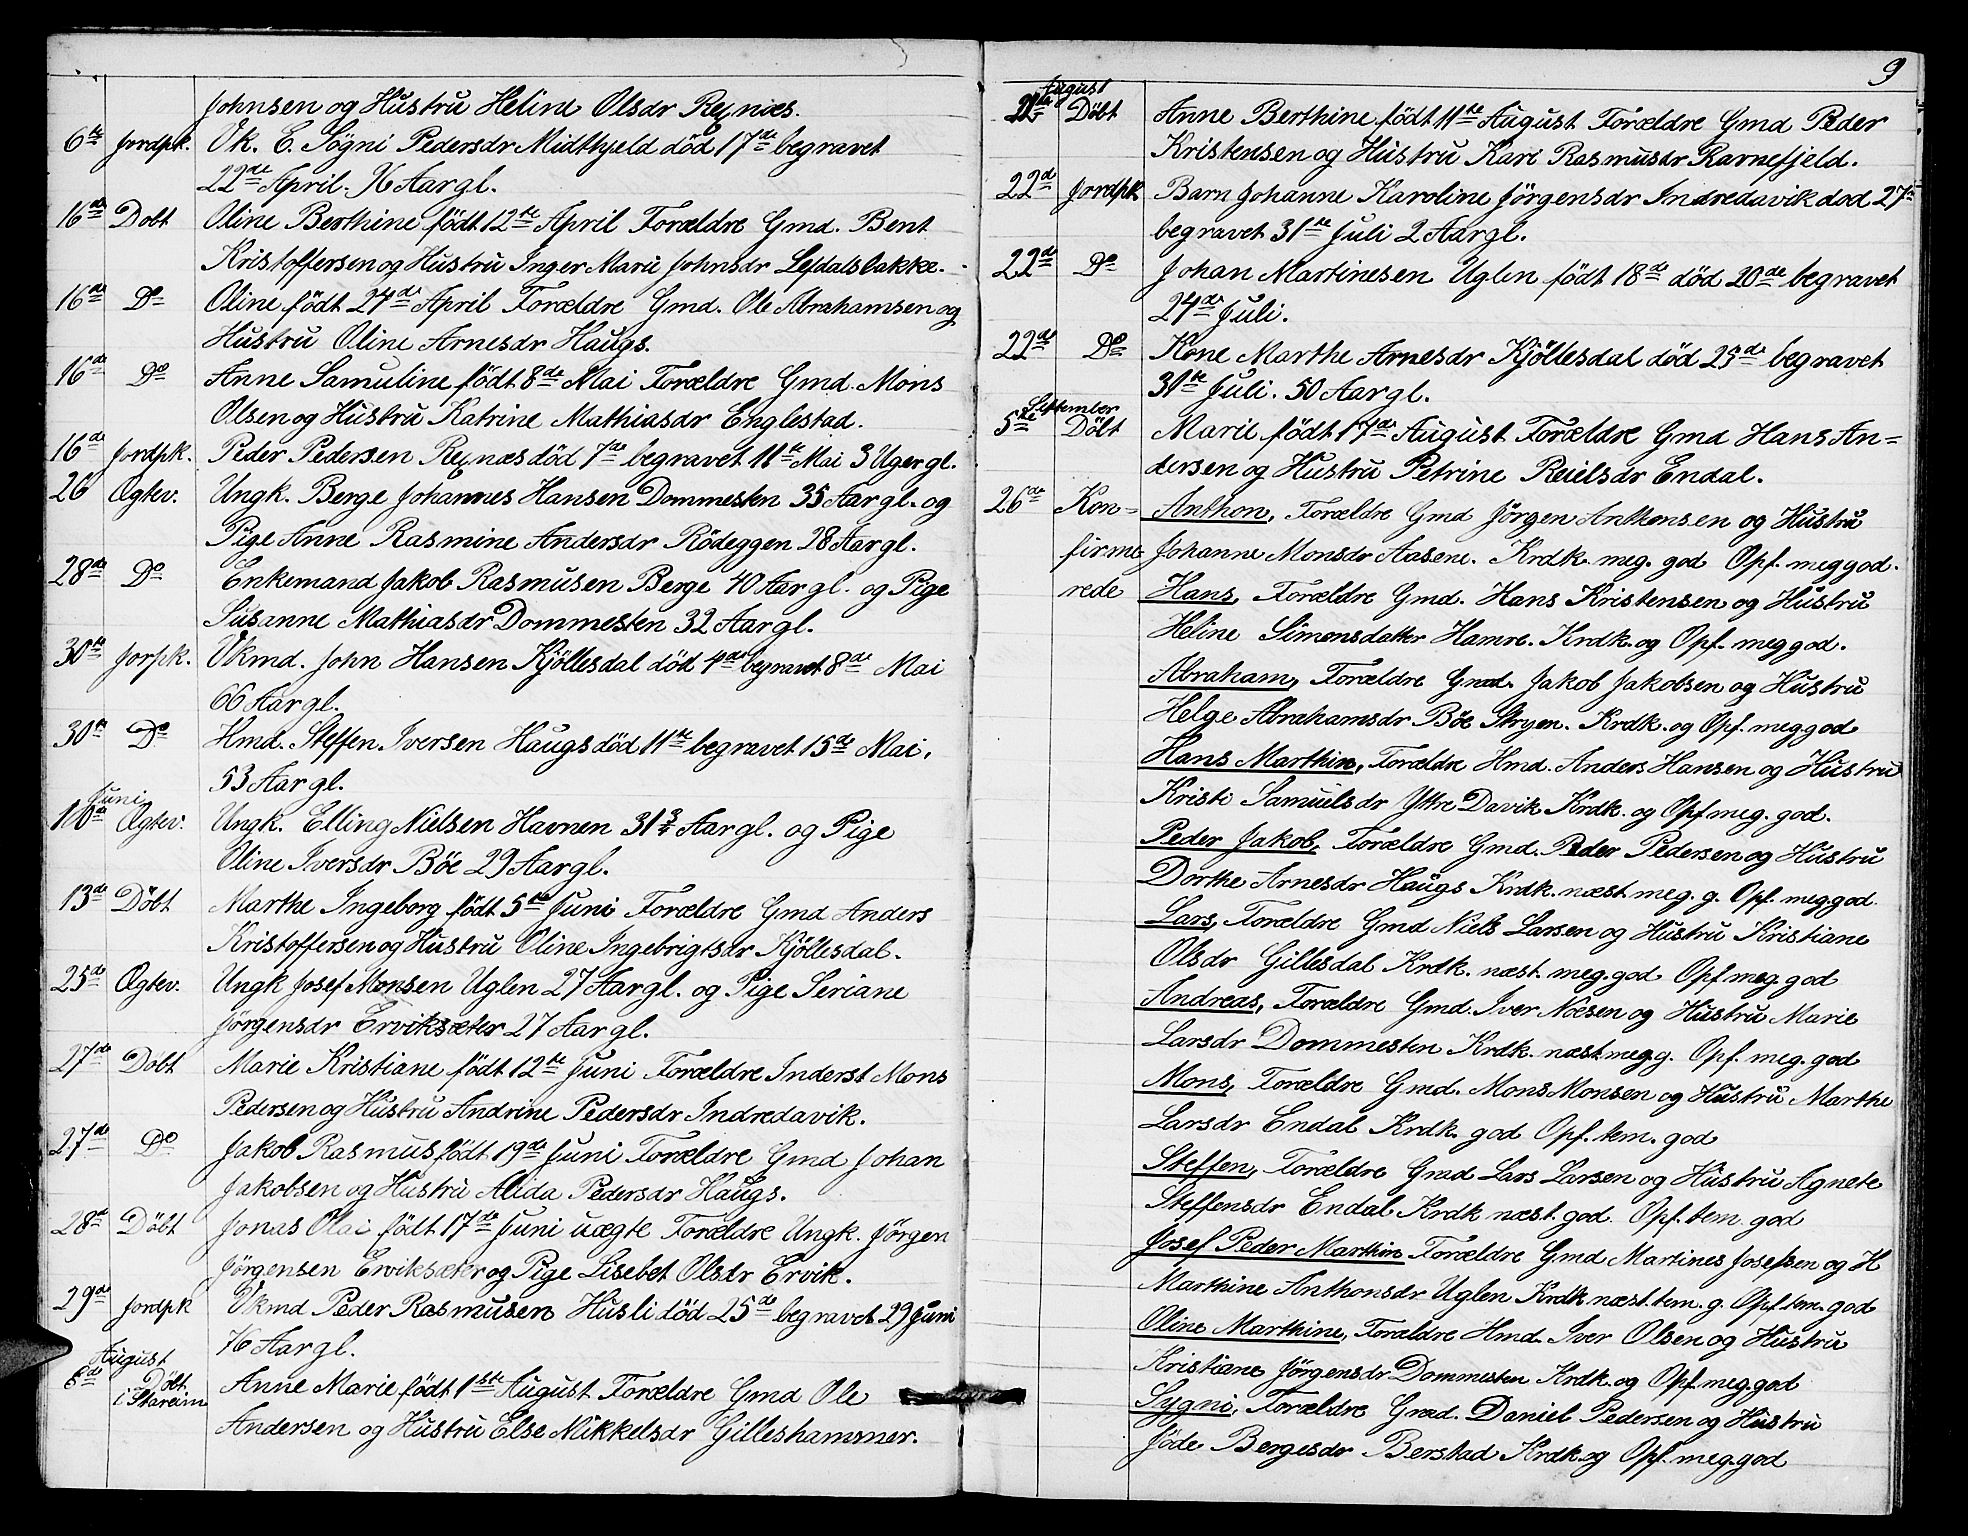 Johnsen og Hustru Heline Olsdr Reynæs.
6te Jordpk. Vk. E. Sögni Pedersdr Midthjeld död 17de begravet
22de April. 76 Aar gl.
16de Döbt Oline Berthine född 12te April Forældre Gmd. Bent
Kristoffersen og Hustru Inger Marie Johnsdr Lefdalsbakke.
16de Do Oline född 24de April Forældre Gmd. Ole Abrahamsen og
Hustru Oline Arnesdr Haugs.
16de Do Anne Samuline född 8de Mai Forældre Gmd. Mons
Olsen og Hustru Katrine Mathiasdr Englestad.
16de Jordpk. Peder Pedersen Reynæs död 7de begravet 11te Mai 3 Uger gl.
26 Ægtev. Ungk. Berge Johannes Hansen Dommesten 35 Aar gl. og
Pige Anne Rasmine Andersdr Rödeggen 28 Aar gl.
28de Do Enkemand Jakob Rasmusen Berge 40 Aar gl. og Pige
Susanne Mathiasdr Dommesten 32 Aar gl.
30te Jorpk. Vkmd. John Hansen Kjöllesdal död 4de begravet 8de Mai
66 Aar gl.
30te Do Hmd. Steffen Iversen Haugs död 11te begravet 15de Mai,
53 Aar gl.
Juni
10de Ægtev. Ungk. Elling Nielsen Havnen 31 3/4 Aar gl. og Pige
Oline Iversdr Böe 29 Aar gl.
13de Döbt Marthe Ingeborg född 5te Juni Forældre Gmd Anders
Kristoffersen og Hustru Oline Ingebrigtsdr Kjöllesdal.
25de Ægtev. Ungk Josef Monsen Uglen 27 Aar gl. og Pige Seriane
Jörgensdr Erviksæter 27 Aar gl.
27de Döbt Marie Kristiane född 12te Juni Forældre Inderst Mons
Pedersen og Hustru Andrine Pedersdr Indredavik.
27de Do Jakob Rasmus född 19de Juni Forældre Gmd Johan
Jakobsen og Hustru Alida Pedersdr Haugs.
28de Döbt Jonas Olai född 17de Juni uægte Forældre Ungk. Jörgen
Jörgensen Erviksæter og Pige Lisebet Olsdr Ervik.
29de Jordpk Vkmd Peder Rasmusen Husli död 25de begravet 29 Juni
76 Aar gl.
August
8de Döbt i Stareim Anne Marie född 1ste August Forældre Gmd Ole
Andersen og Hustru Else Mikkelsdr Gilleshammer.
9
August
Döbt Anne Berthine född 11te August Forældre Gmd Peder
Kristensen og Hustru Kari Rasmusdr Ravnefjeld.
22de Jordpk Barn Johanne Karoline Jörgensdr Indredavik död 27de
begravet 31te Juli 2 Aar gl.
22de Do Johan Martinesen Uglen född 18de död 20de begravet
24de Juli.
22de Do Kone Marthe Arnesdr Kjöllesdal död 25de begravet
31te Juli. 50 Aar gl.
September
5te Döbt Marie född 17de August Forældre Gmd Hans An=
dersen og Hustru Petrine Reielsdr Endal.
26de Kon= Anthon, Forældre Gmd Jörgen Anthonsen og Hustru
firme Johanne Monsdr Aasene. Krdk. meg. god Opf. meg god.
rede Hans, Forældre Gmd. Hans Kristensen og Hustru
Heline Simonsdatter Hamre. Krdk. og Opf. meg god.
Abraham, Forældre Gmd. Jakob Jakobsen og Hustru
Helge Abrahamsdr Böe Stryen. Krdk. og Opf. meg god
Hans Marthin, Forældre Hmd. Anders Hansen og Hustru
Kristi Samuelsdr Ytre Davik Krdk. og Opf meg. god.
Peder Jakob, Forældre Gmd. Peder Pedersen og Hustru
Dorthe Arnesdr Haugs Krdk. næst meg. g. Opf. meg god.
Lars, Forældre Gmd Niels Larsen og Hustru Kristiane
Olsdr Gillesdal Krdk. næst. meg. god Opf meg. god
Andreas, Forældre Gmd. Iver Noesen og Hustru Marie
Larsdr Dommesten Krdk. næst meg g. Opf. meg. god
Mons, Forældre Gmd. Mons Monsen og Hustru Marthe
Larsdr Endal Krdk. god Opf. tem. god
Steffen, Forældre Gmd Lars Larsen og Hustru Agnete
Steffensdr Endal Krdk næst. god. Opf. tem. god
Josef Peder Marthin Forældre Gmd Martines Josefsen og H
Marthine Anthonsdr Uglen Krdk næst. tem. g. Opf. tem. god
Oline Marthine, Forældre Hmd. Iver Olsen og Hustru
Kristiane Jörgensdr Dommesten Krdk. og Opf. meg. god
Sygni, Forældre Gmd. Daniel Pedersen og Hustru
Jöde Bergesdr Berstad Krdk. og Opf. meg. god